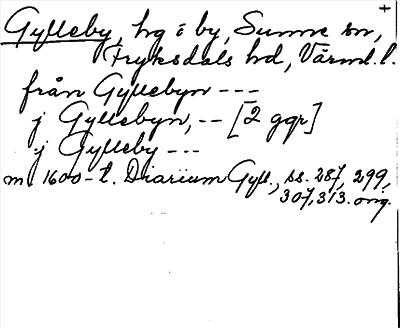 Gylleby, hg i by, Sunne sn, +
Fryksdals hd, Värml. l.
från Gyllebyn ---
j Gyllebyn, -- [2 ggr]
j Gylleby ---
m. 1600-t. Diarium Gyll., ss. 287, 299,
307, 313. orig.